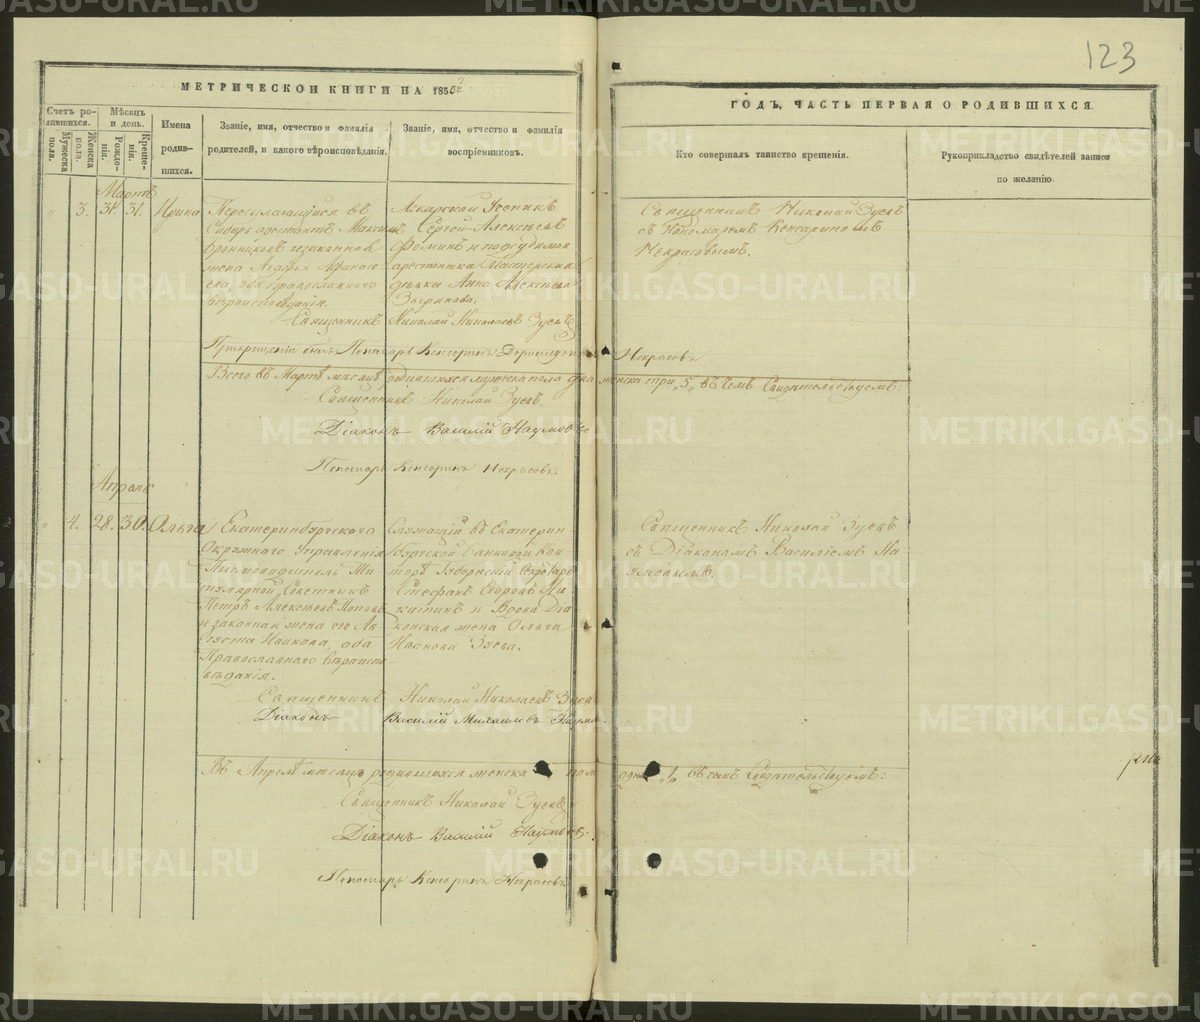 123
МЕТРИЧЕСКОЙ КНИГИ НА 185
ГОДЪ, ЧАСТЬ ПЕРВАЯ О РОДИВШИХСЯ.
Счетъ родившихся.
Мужеска пола.
Женска пола.
Мѣсяцъ и день.
Рожденія.
Крещенія.
Имена родившихся.
Званіе, имя, отчество и фамилія
родителей, и какого вѣроисповѣданія.
Званіе, имя, отчество и фамилія
воспріемниковъ.
Кто совершалъ таинство крещенія.
Рукоприкладство свидѣтелей записи
по желанію.
Мартъ
" 3. 31. 31. Ирина
Пересылающійся въ
Сибирь арестантъ Максимъ
и законная
жена
, оба Православнаго
вѣроисповѣданія.
Сергей Алексѣевъ
Фоминъ и подсудимая
арестантка
девка Анна Алексѣева
Зырянова.
Священникъ Николай Зуевъ
съ Пономаремъ Кенсориномъ
Некрасовымъ.
Священникъ Николай Николаевъ Зуевъ
При крещеніи былъ Пономарь Кенсоринъ Некрасовъ
Всего въ Мартѣ мѣсяцѣ родившихся мужеска пола два женска три, 5, въ чемъ Свидѣтельствуемъ:
Священникъ Николай Зуевъ.
Діаконъ Василій Наумовъ
Пономарь Кенсоринъ Некрасовъ.
Апрель
" 4. 28. 30. Ольга
Екатеринбургскаго
Окружнаго Управленія
Письмоводитель Ти-
тулярной Советникъ
Петръ Алексѣевъ Поповъ
и законная жена его Ав-
густа Иванова, оба
Православнаго вѣроиспо-
вѣданія.
Служащій въ Екатерин-
бургской Банковой Кон-
торѣ Губернскій Секретарь
Стефанъ Егоровъ Ни-
китинъ и Вдова Діа-
конская жена Ольга
Иванова Зуева.
Священникъ Николай Зуевъ
съ Діакономъ Василіемъ На-
умовымъ.
Священникъ Николай Николаевъ Зуевъ
Діаконъ Василій Михайловъ Наумовъ
Въ Апрелѣ мѣсяцѣ родившихся женска пола одна, 1, въ чемъ Свидѣтельствуемъ:
Священникъ Николай Зуевъ
Діаконъ Василій Наумовъ.
Пономарь Кенсоринъ Некрасовъ
METRIKI.GASO-URAL.RU